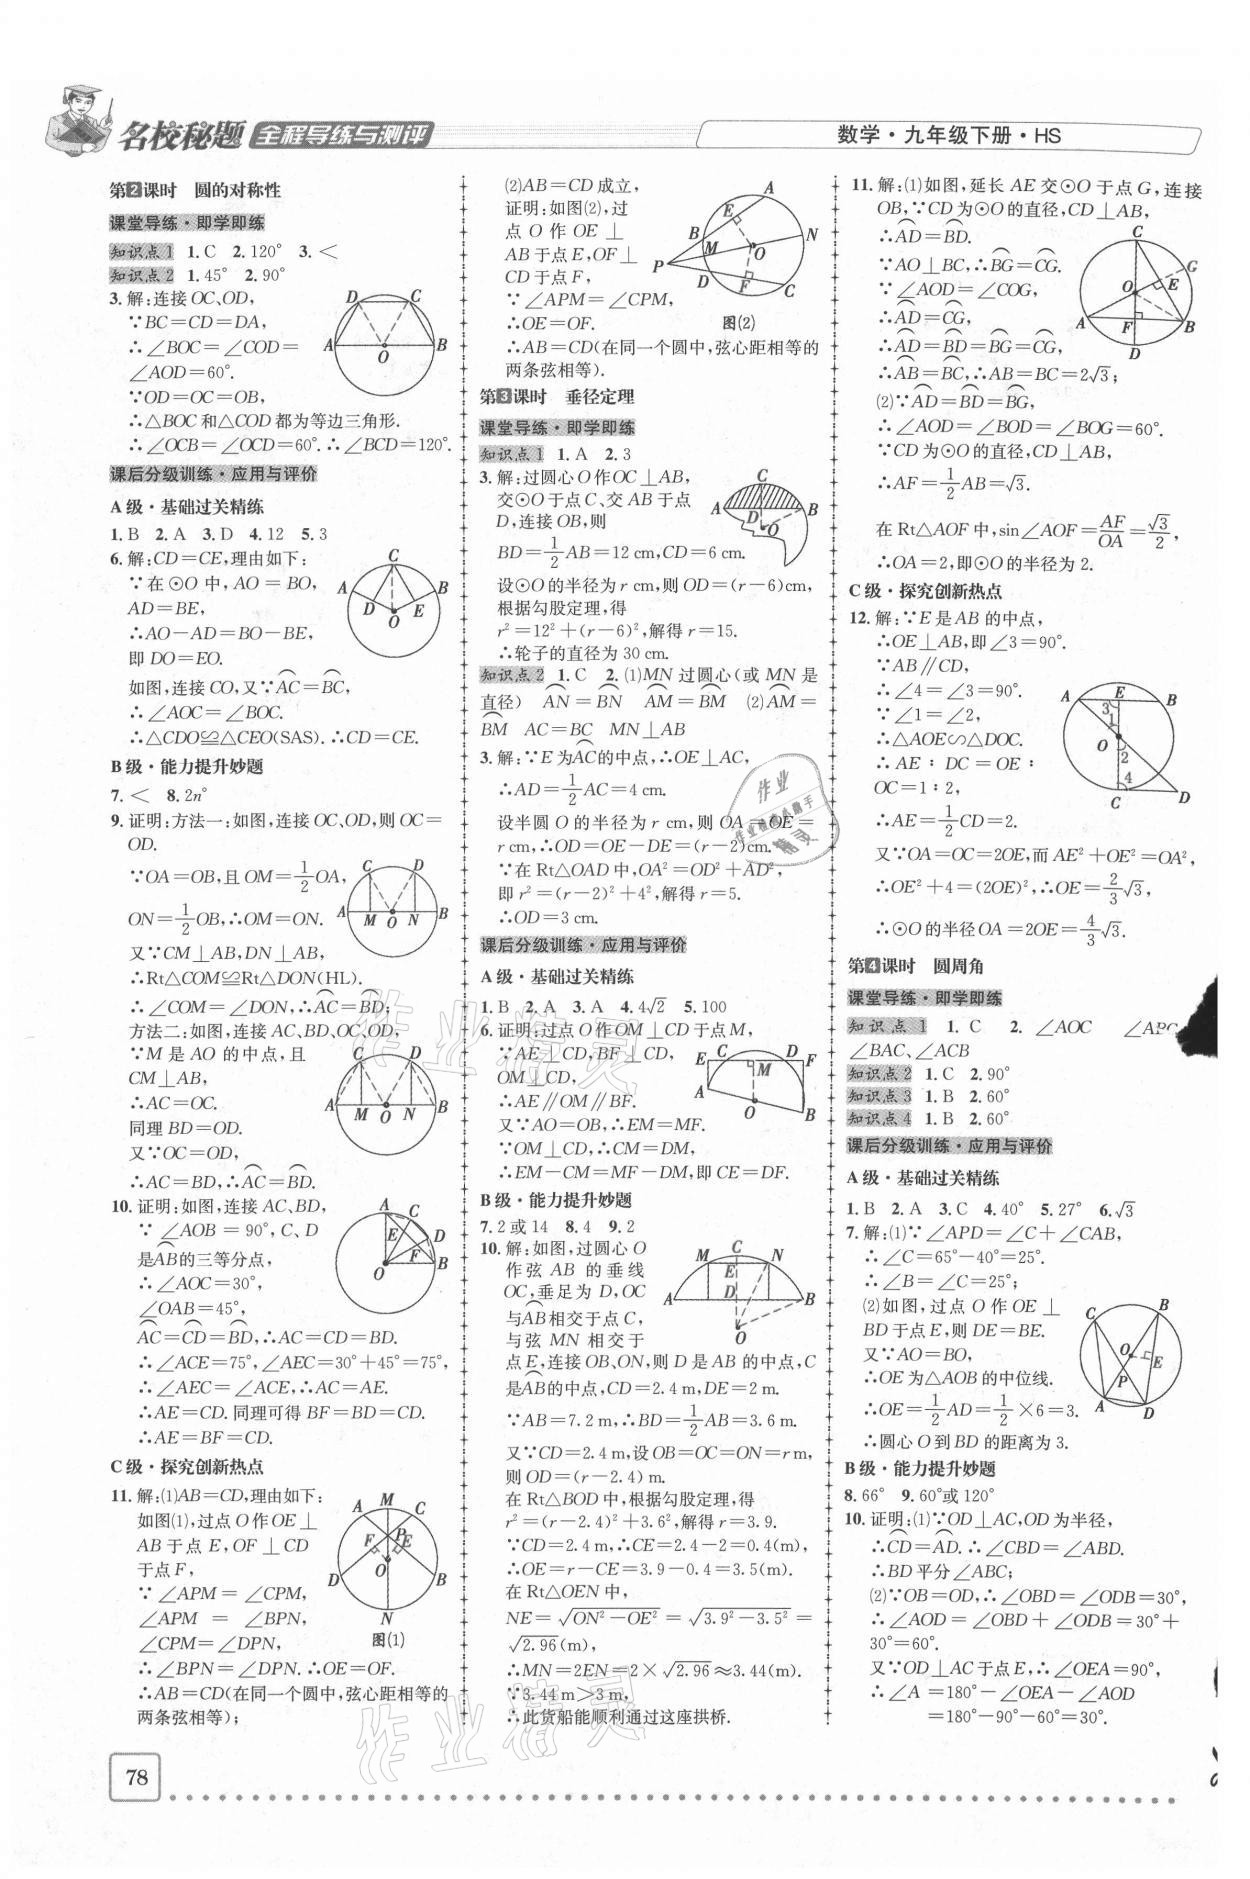 名校秘题 全程导练与测评
数学·九年级下册·HS
第2课时 圆的对称性
课堂导练·即学即练
知识点1 1.C 2.120° 3.<
知识点2 1.45° 2.90°
3.解:连接OC、OD,
∵BC=CD=DA,
∴∠BOC=∠COD=
∠AOD=60°.
∵OD=OC=OB,
∴△BOC和△COD都为等边三角形.
∴∠OCB=∠OCD=60°.∴∠BCD=120°.
课后分级训练·应用与评价
A级·基础过关精练
1.B 2.A 3.D 4.12 5.3
6.解:CD=CE,理由如下:
∵在⊙O中,AO=BO,
AD=BE,
∴AO-AD=BO-BE,
即DO=EO.
如图,连接CO,又∵⌒AC=⌒BC,
∴∠AOC=∠BOC.
∴△CDO≌△CEO(SAS).∴CD=CE.
B级·能力提升妙题
7.< 8.2n°
9.证明:方法一:如图,连接OC、OD,则OC=
OD.
∵OA=OB,且OM=1/2OA,
ON=1/2OB,∴OM=ON.
又∵CM⊥AB,DN⊥AB,
∴Rt△COM≌Rt△DON(HL).
∴∠COM=∠DON,∴⌒AC=⌒BD;
方法二:如图,连接AC、BD、OC、OD,
∵M是AO的中点,且
CM⊥AB,
∴AC=OC.
同理BD=OD.
又∵OC=OD,
∴AC=BD,∴⌒AC=⌒BD.
10.证明:如图,连接AC、BD,
∵∠AOB=90°,C、D
是⌒AB的三等分点,
∴∠AOC=30°,
∠OAB=45°,
⌒AC=⌒CD=⌒BD,∴AC=CD=BD.
∴∠ACE=75°,∠AEC=30°+45°=75°,
∴∠AEC=∠ACE,∴AC=AE.
∴AE=CD.同理可得BF=BD=CD.
∴AE=BF=CD.
C级·探究创新热点
11.解:(1)AB=CD,理由如下:
如图(1),过点O作OE⊥
AB于点E,OF⊥CD
于点F,
∵∠APM=∠CPM,
∠APM=∠BPN,
∠CPM=∠DPN,
图(1)
∴∠BPN=∠DPN.∴OE=OF.
∴AB=CD(在同一个圆中,弦心距相等的
两条弦相等);
(2)AB=CD成立,
证明:如图(2),过
点O作OE⊥
AB于点E,OF⊥
CD于点F,
∵∠APM=∠CPM,
∴OE=OF.
图(2)
∴AB=CD(在同一个圆中,弦心距相等的
两条弦相等).
第3课时 垂径定理
课堂导练·即学即练
知识点1 1.A 2.3
3.解:过圆心O作OC⊥AB,
交⊙O于点C、交AB于点
D,连接OB,则
BD=1/2AB=12 cm,CD=6 cm.
设⊙O的半径为r cm,则OD=(r-6)cm,
根据勾股定理,得
r²=12²+(r-6)²,解得r=15.
∴轮子的直径为30 cm.
知识点2 1.C 2.(1)MN过圆心(或MN是
直径) ⌒AN=⌒BN ⌒AM=⌒BM (2)⌒AM=
⌒BM AC=BC MN⊥AB
3.解:∵E为⌒AC的中点,∴OE⊥AC,
∴AD=1/2AC=4 cm.
设半圆O的半径为r cm,则OA=OE=
r cm,∴OD=OE-DE=(r-2)cm.
∵在Rt△OAD中,OA²=OD²+AD²,
即r²=(r-2)²+4²,解得r=5.
∴OD=3 cm.
课后分级训练·应用与评价
A级·基础过关精练
1.B 2.A 3.A 4.4√2 5.100
6.证明:过点O作OM⊥CD于点M,
∵AE⊥CD,BF⊥CD,
OM⊥CD,
∴AE∥OM∥BF.
又∵AO=OB,∴EM=MF.
∵OM⊥CD,∴CM=DM,
∴EM-CM=MF-DM,即CE=DF.
B级·能力提升妙题
7.2或14 8.4 9.2
10.解:如图,过圆心O
作弦AB的垂线
OC,垂足为D,OC
与⌒AB相交于点C,
与弦MN相交于
点E,连接OB、ON,则D是AB的中点,C
是⌒AB的中点,CD=2.4 m,DE=2 m.
∵AB=7.2 m,∴BD=1/2AB=3.6 m.
又∵CD=2.4 m,设OB=OC=ON=r m,
则OD=(r-2.4) m.
在Rt△BOD中,根据勾股定理,得
r²=(r-2.4)²+3.6²,解得r=3.9.
∵CD=2.4 m,∴CE=2.4-2=0.4(m),
∴OE=r-CE=3.9-0.4=3.5(m).
在Rt△OEN中,
NE=√(ON²-OE²)=√(3.9²-3.5²)=
√2.96(m),
∴MN=2EN=2×√2.96≈3.44(m).
∵3.44 m>3 m,
∴此货船能顺利通过这座拱桥.
11.解:(1)如图,延长AE交⊙O于点G,连接
OB,∵CD为⊙O的直径,CD⊥AB,
∴⌒AD=⌒BD.
∵AO⊥BC,∴⌒BG=⌒CG.
∵∠AOD=∠COG,
∴⌒AD=⌒CG,
∴⌒AD=⌒BD=⌒BG=⌒CG,
∴⌒AB=⌒BC,∴AB=BC=2√3;
(2)∵⌒AD=⌒BD=⌒BG,
∴∠AOD=∠BOD=∠BOG=60°.
∵CD为⊙O的直径,CD⊥AB,
∴AF=1/2AB=√3.
在Rt△AOF中,sin∠AOF=AF/OA=√3/2,
∴OA=2,即⊙O的半径为2.
C级·探究创新热点
12.解:∵E是AB的中点,
∴OE⊥AB,即∠3=90°.
∵AB∥CD,
∴∠4=∠3=90°.
∵∠1=∠2,
∴△AOE∽△DOC.
∴AE∶DC=OE∶
OC=1∶2,
∴AE=1/2CD=2.
又∵OA=OC=2OE,而AE²+OE²=OA²,
∴OE²+4=(2OE)²,∴OE=2/3√3,
∴⊙O的半径OA=2OE=4/3√3.
第4课时 圆周角
课堂导练·即学即练
知识点1 1.C 2.∠AOC
∠BAC、∠ACB
知识点2 1.C 2.90°
知识点3 1.B 2.60°
知识点4 1.B 2.60°
课后分级训练·应用与评价
A级·基础过关精练
1.B 2.A 3.C 4.40° 5.27° 6.√3
7.解:(1)∵∠APD=∠C+∠CAB,
∴∠C=65°-40°=25°.
∴∠B=∠C=25°;
(2)如图,过点O作OE⊥
BD于点E,则DE=BE.
又∵AO=BO,
∴OE为△AOB的中位线.
∴OE=1/2AD=1/2×6=3.
∴圆心O到BD的距离为3.
B级·能力提升妙题
8.66° 9.60°或120°
10.证明:(1)∵OD⊥AC,OD为半径,
∴⌒CD=⌒AD.∴∠CBD=∠ABD.
∴BD平分∠ABC;
(2)∵OB=OD,∴∠OBD=∠ODB=30°,
∴∠AOD=∠OBD+∠ODB=30°+
30°=60°.
又∵OD⊥AC于点E,∴∠OEA=90°,
∴∠A=180°-∠OEA-∠AOD
=180°-90°-60°=30°.
78